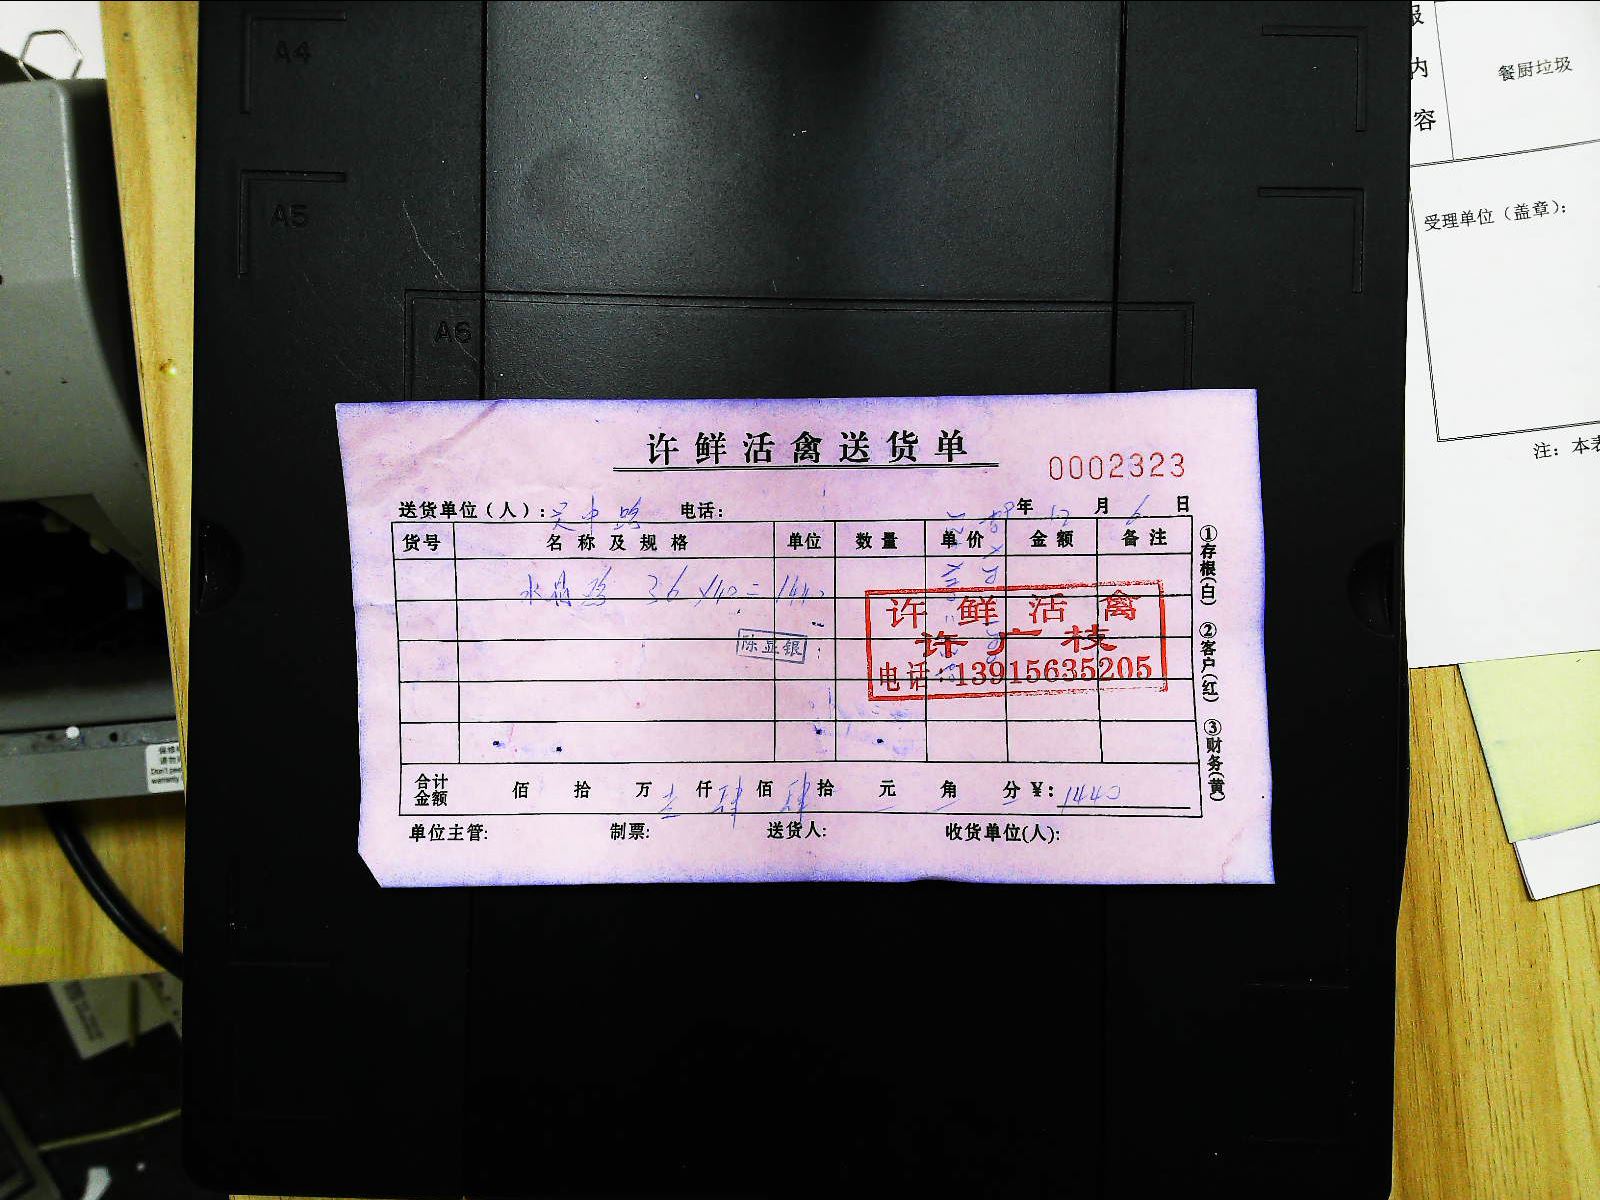 A4
A5
A6
报
内
容
餐厨垃圾
受理单位（盖章）：
注：本表
许鲜活禽送货单
0002323
送货单位（人）：吴中路 电话： 年 12 月 6 日
货号 名称及规格 单位 数量 单价 金额 备注
36 x40 = 1440
许鲜活禽
许广枝
电话：13915635205
陈显银
合计金额 佰 拾 万 壹 仟 肆 佰 肆 拾 元 角 分 ¥: 1440
单位主管: 制票: 送货人: 收货单位(人):
①存根(白) ②客户(红) ③财务(黄)
Don't peel
warranty